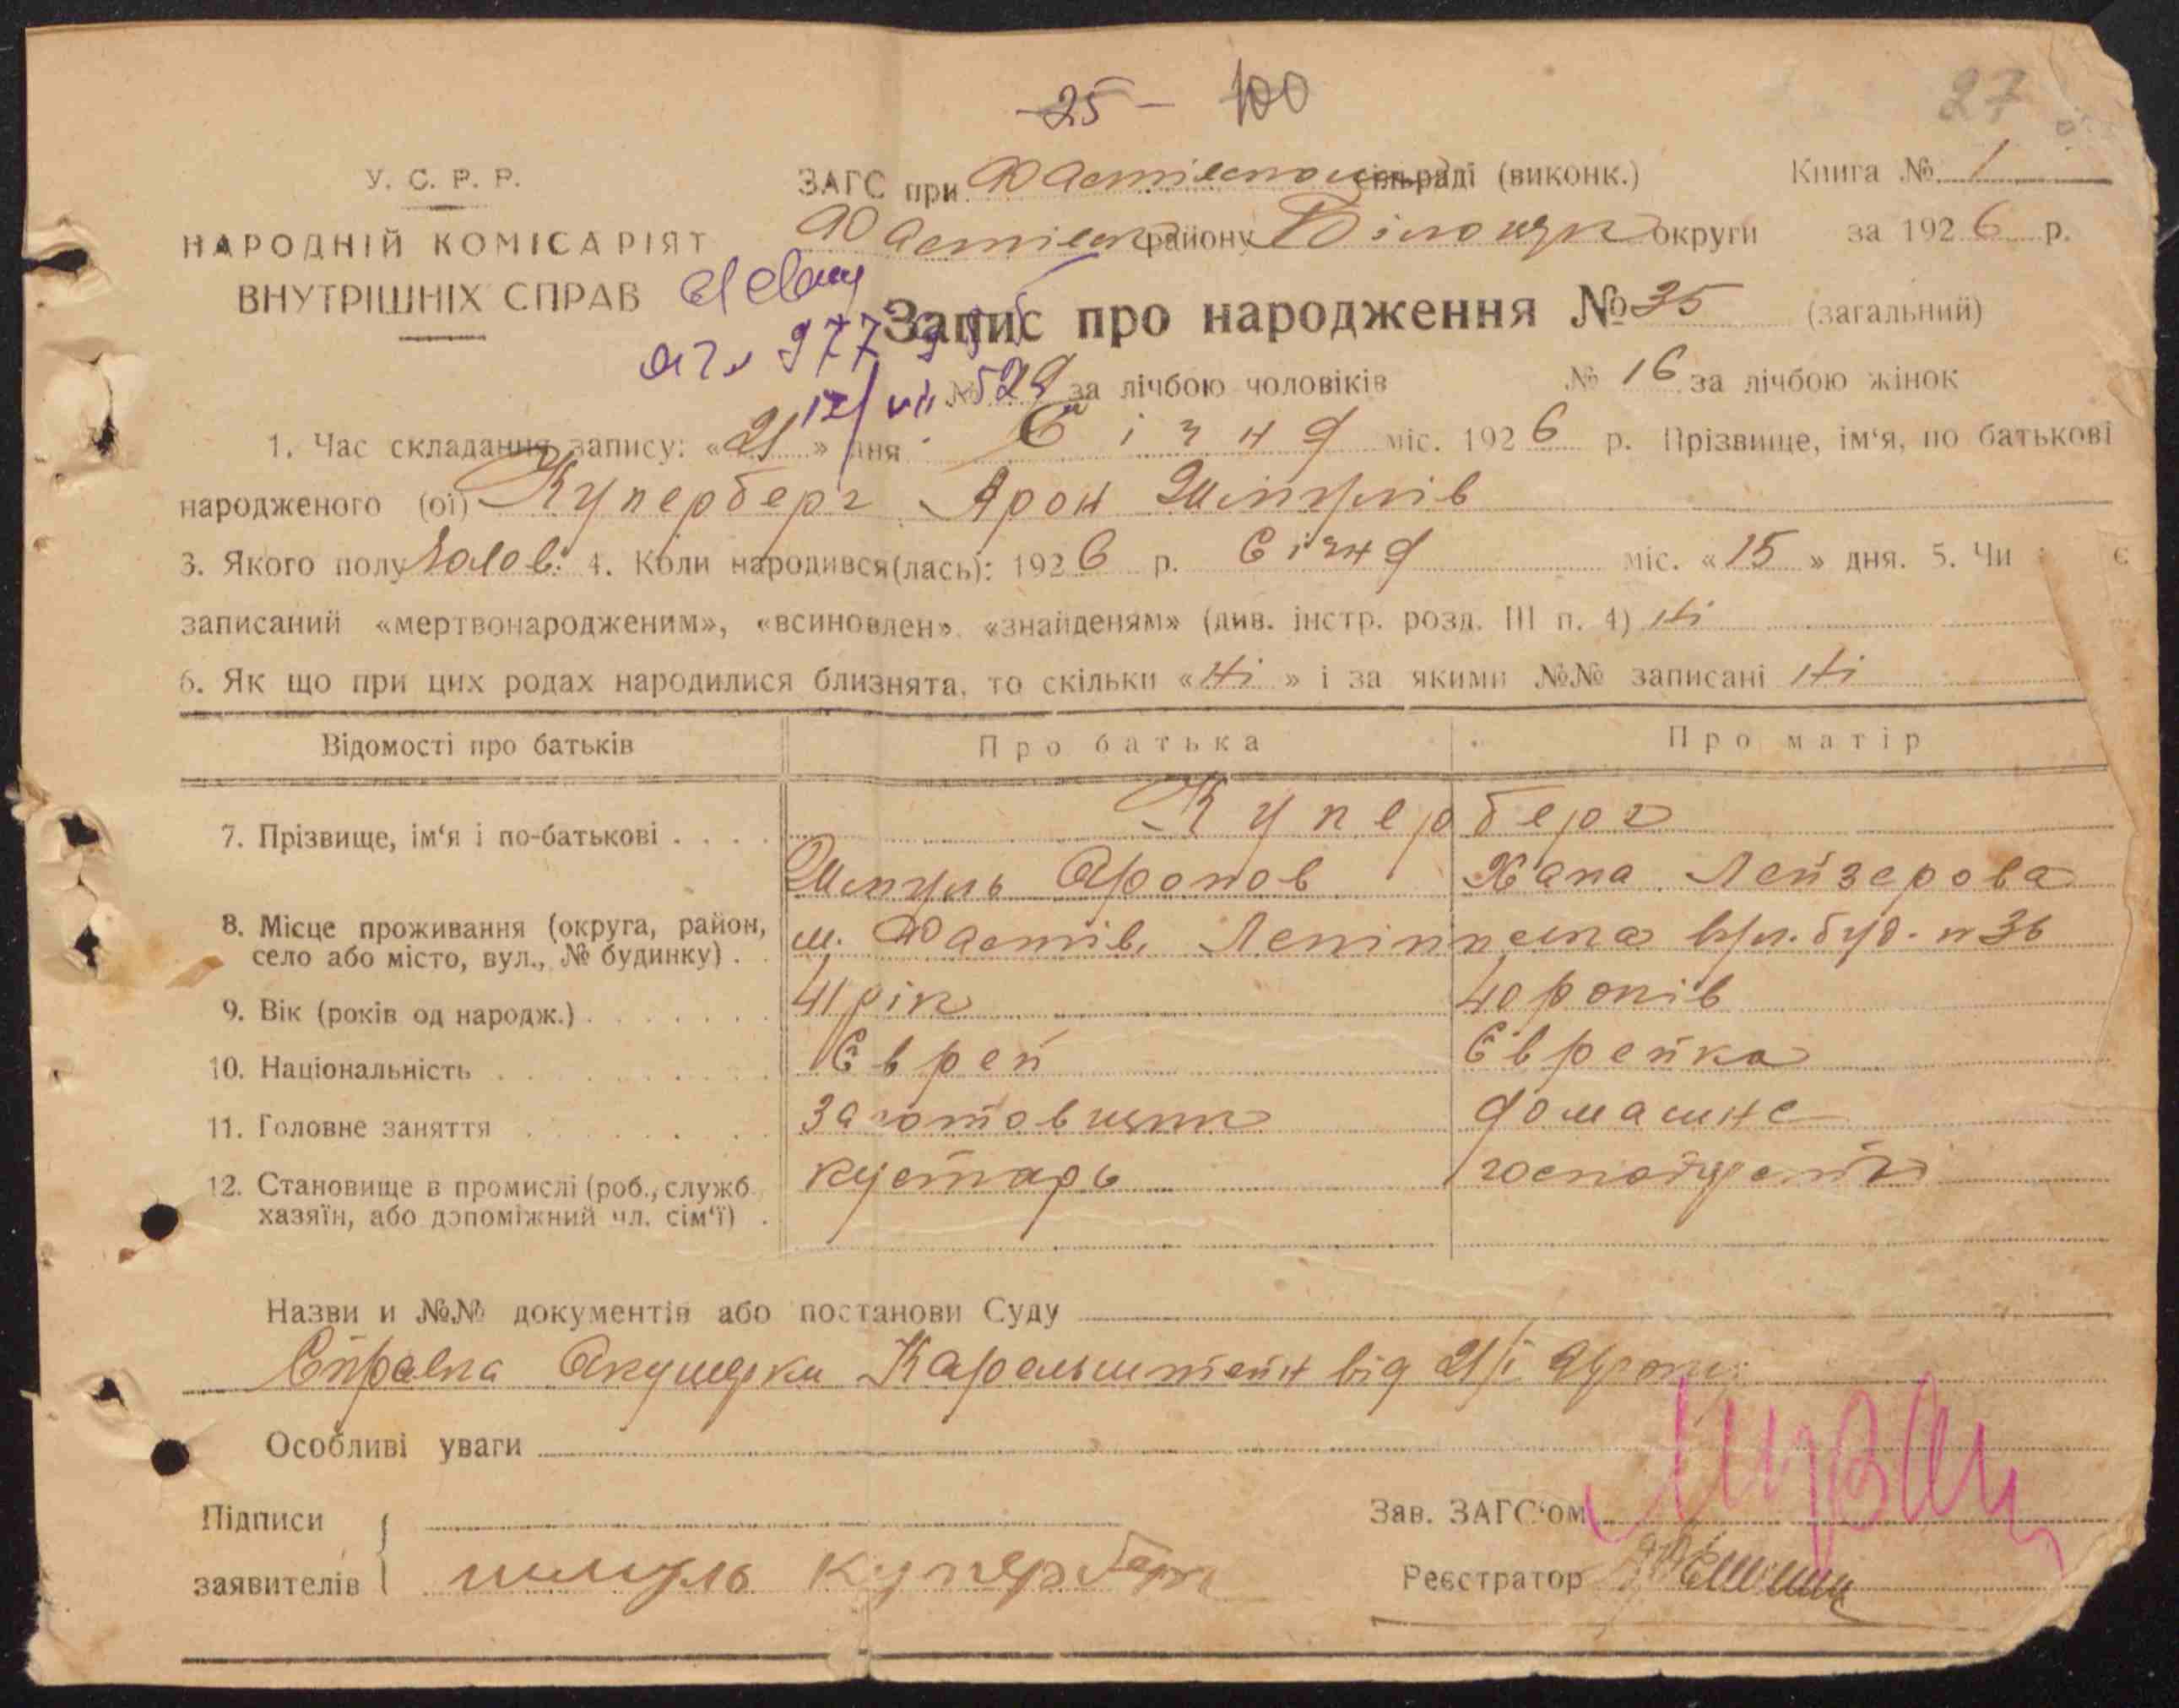 -25- 100
27
У. С. Р. Р.
НАРОДНІЙ КОМІСАРІЯТ
ВНУТРІШНІХ СПРАВ
ЗАГС при Фастівському сільраді (виконк.)
Фастівськ району Білоцерк округи
Книга № 1
за 1926 р.
Запис про народження № 35 (загальний)
977
12/VII
№ 529 за лічбою чоловіків № 16 за лічбою жінок
1. Час складання запису: «21» дня Січня міс. 1926 р. Прізвище, ім‘я, по батькові
народженого (ої) Куперберг Арон Шмулів
3. Якого полу Чолов. 4. Коли народився(лась): 1926 р. Січня міс. «15» дня. 5. Чи є
записаний «мертвонародженим», «всиновлен» «знайденям» (див. інстр. розд. III п. 4) Ні
6. Як що при цих родах народилися близнята, то скільки «Ні» і за якими №№ записані Ні
Відомості про батьків Про батька Про матір
7. Прізвище, ім‘я і по-батькові Куперберг
Шмуль Аронов Хана Лейзерова
8. Місце проживання (округа, район,
село або місто, вул., № будинку) м. Фастів, Ленінська вул. буд. № 36
9. Вік (років од народж.) 41 рік 40 років
10. Національність Єврей Єврейка
11. Головне заняття Заготовщик домашнє
12. Становище в промислі (роб., служб.
хазяїн, або допоміжний чл. сім‘ї) кустарь господарство
Назви и №№ документів або постанови Суду
Справка Акушерки Карельштейн від 21/I 26 року.
Особливі уваги
Підписи
заявителів шмуль куперберг
Зав. ЗАГС‘ом
Реєстратор